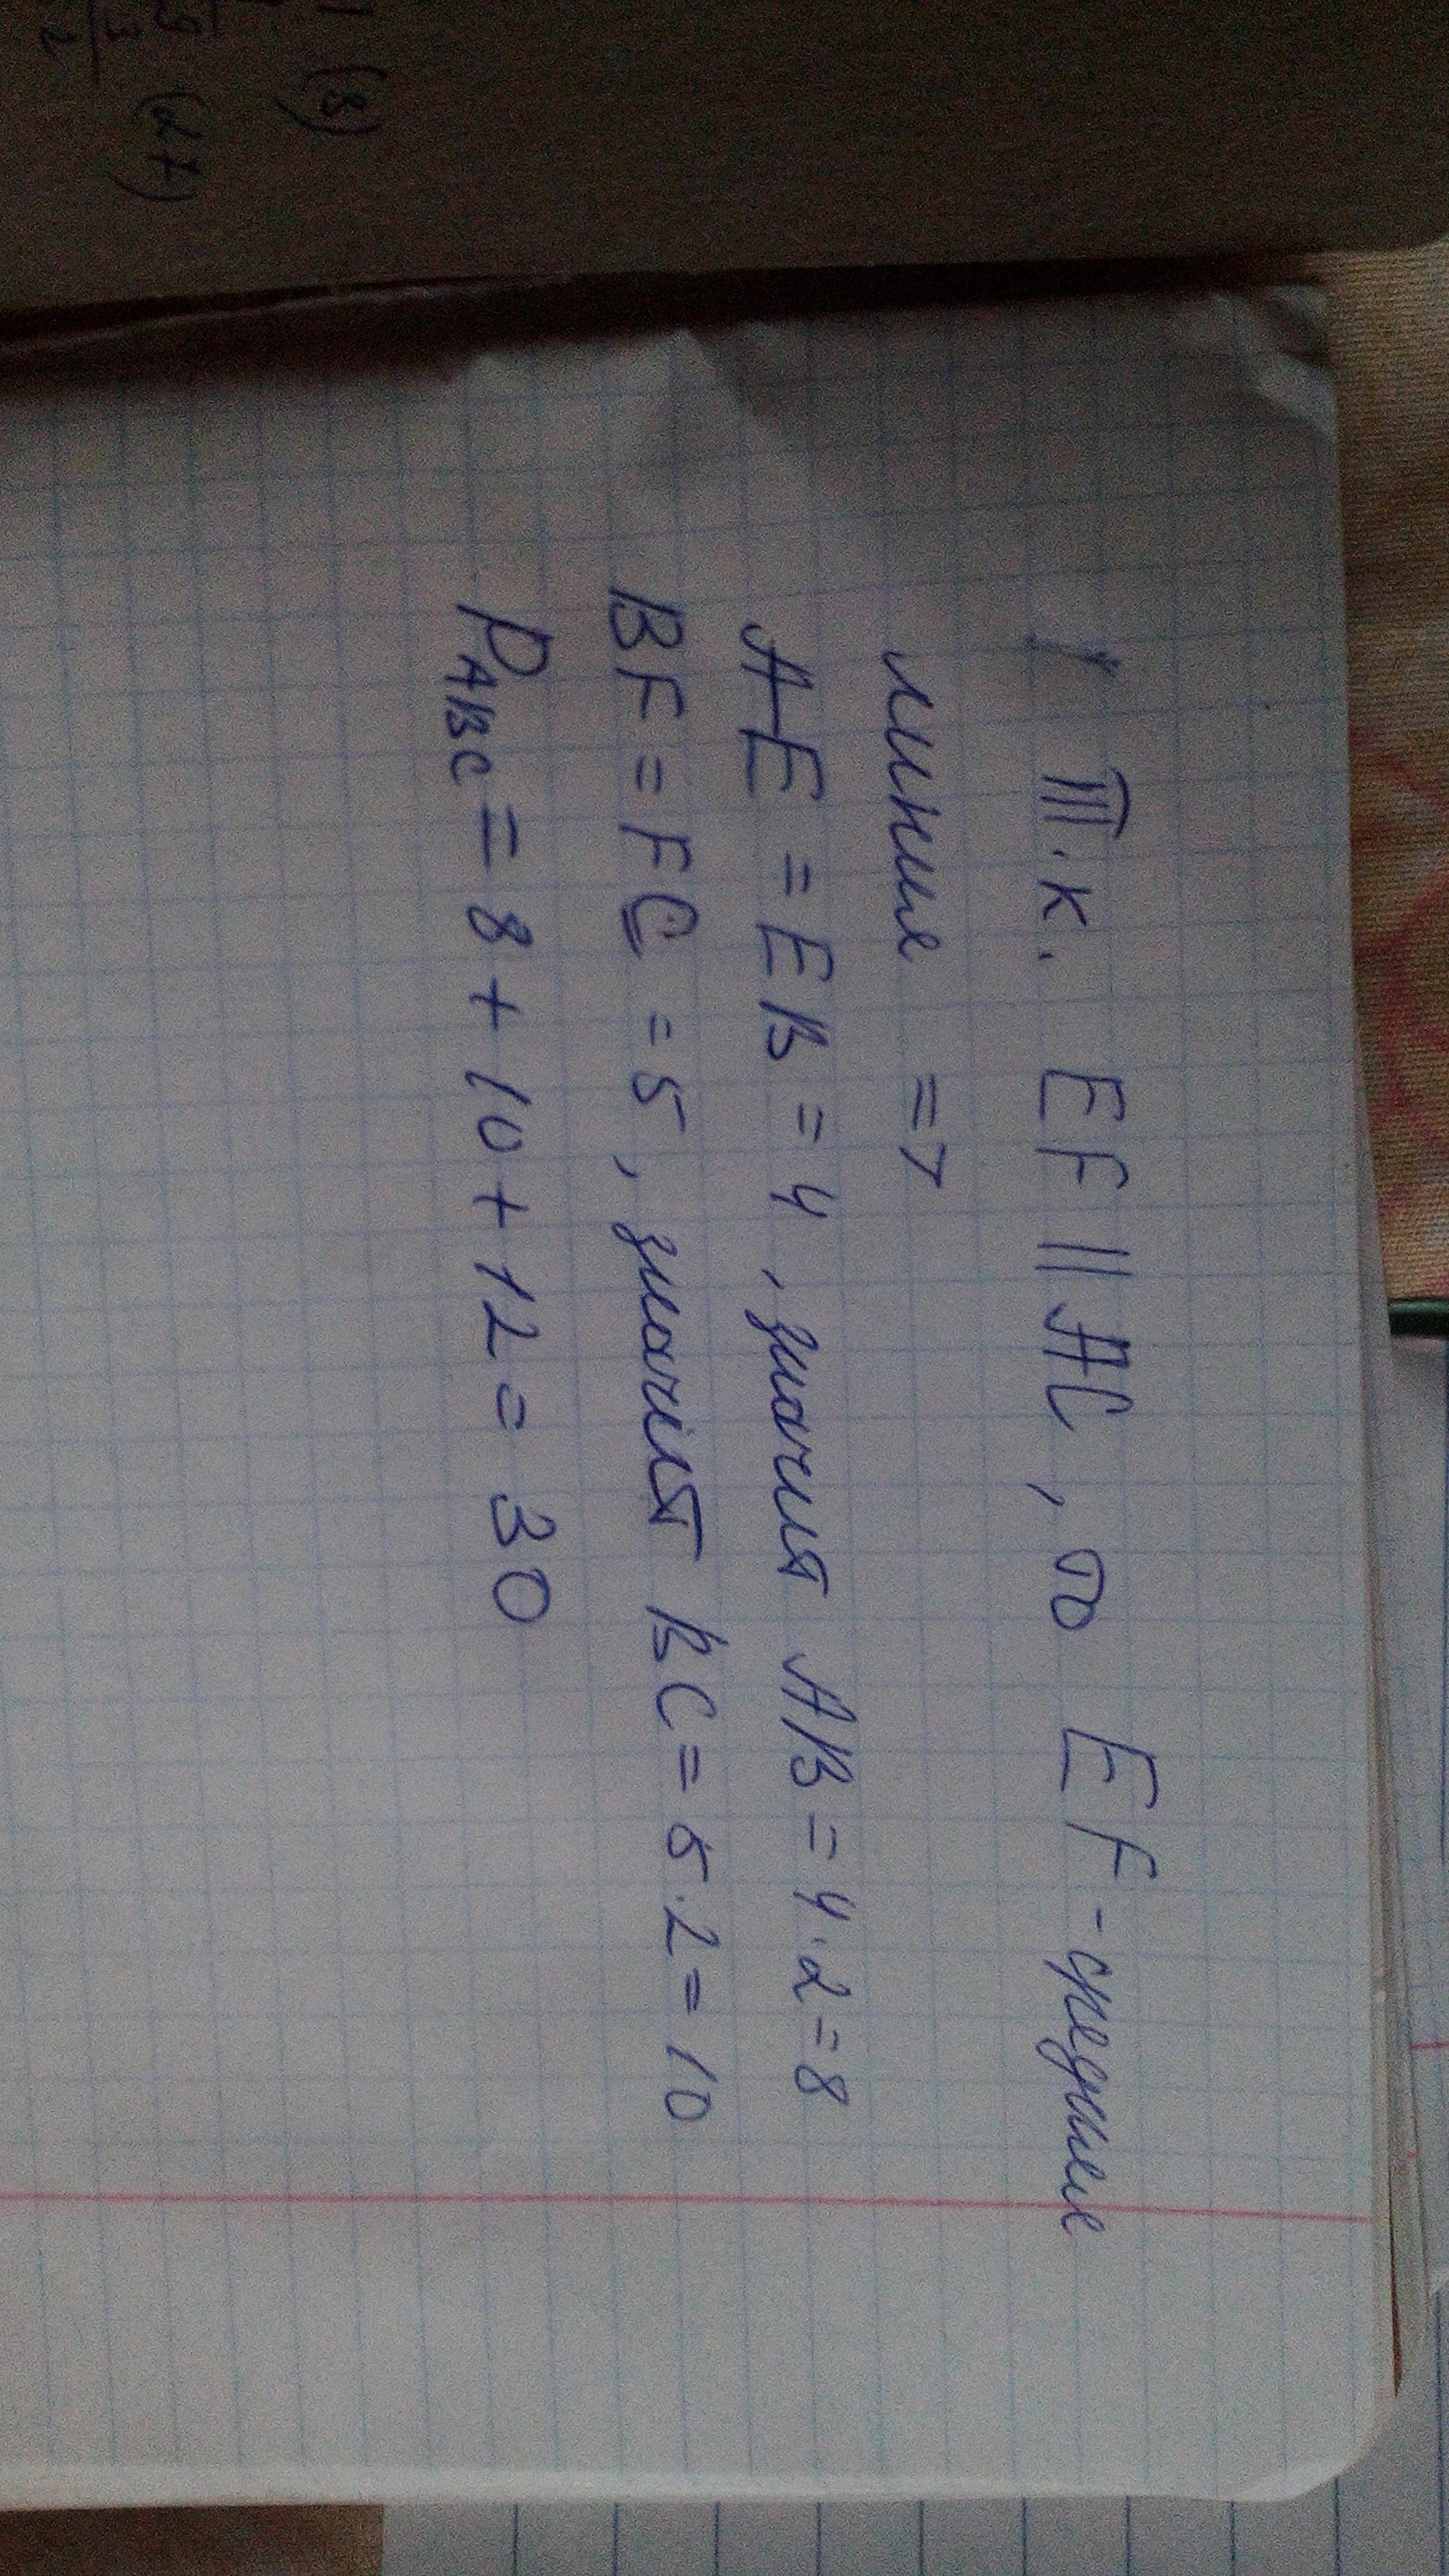 Т.к. EF || AC, то EF - средняя
линия =>
AE = EB = 4, значит AB = 4·2=8
BF = FC = 5, значит BC = 5·2=10
PABC = 8 + 10 + 12 = 30